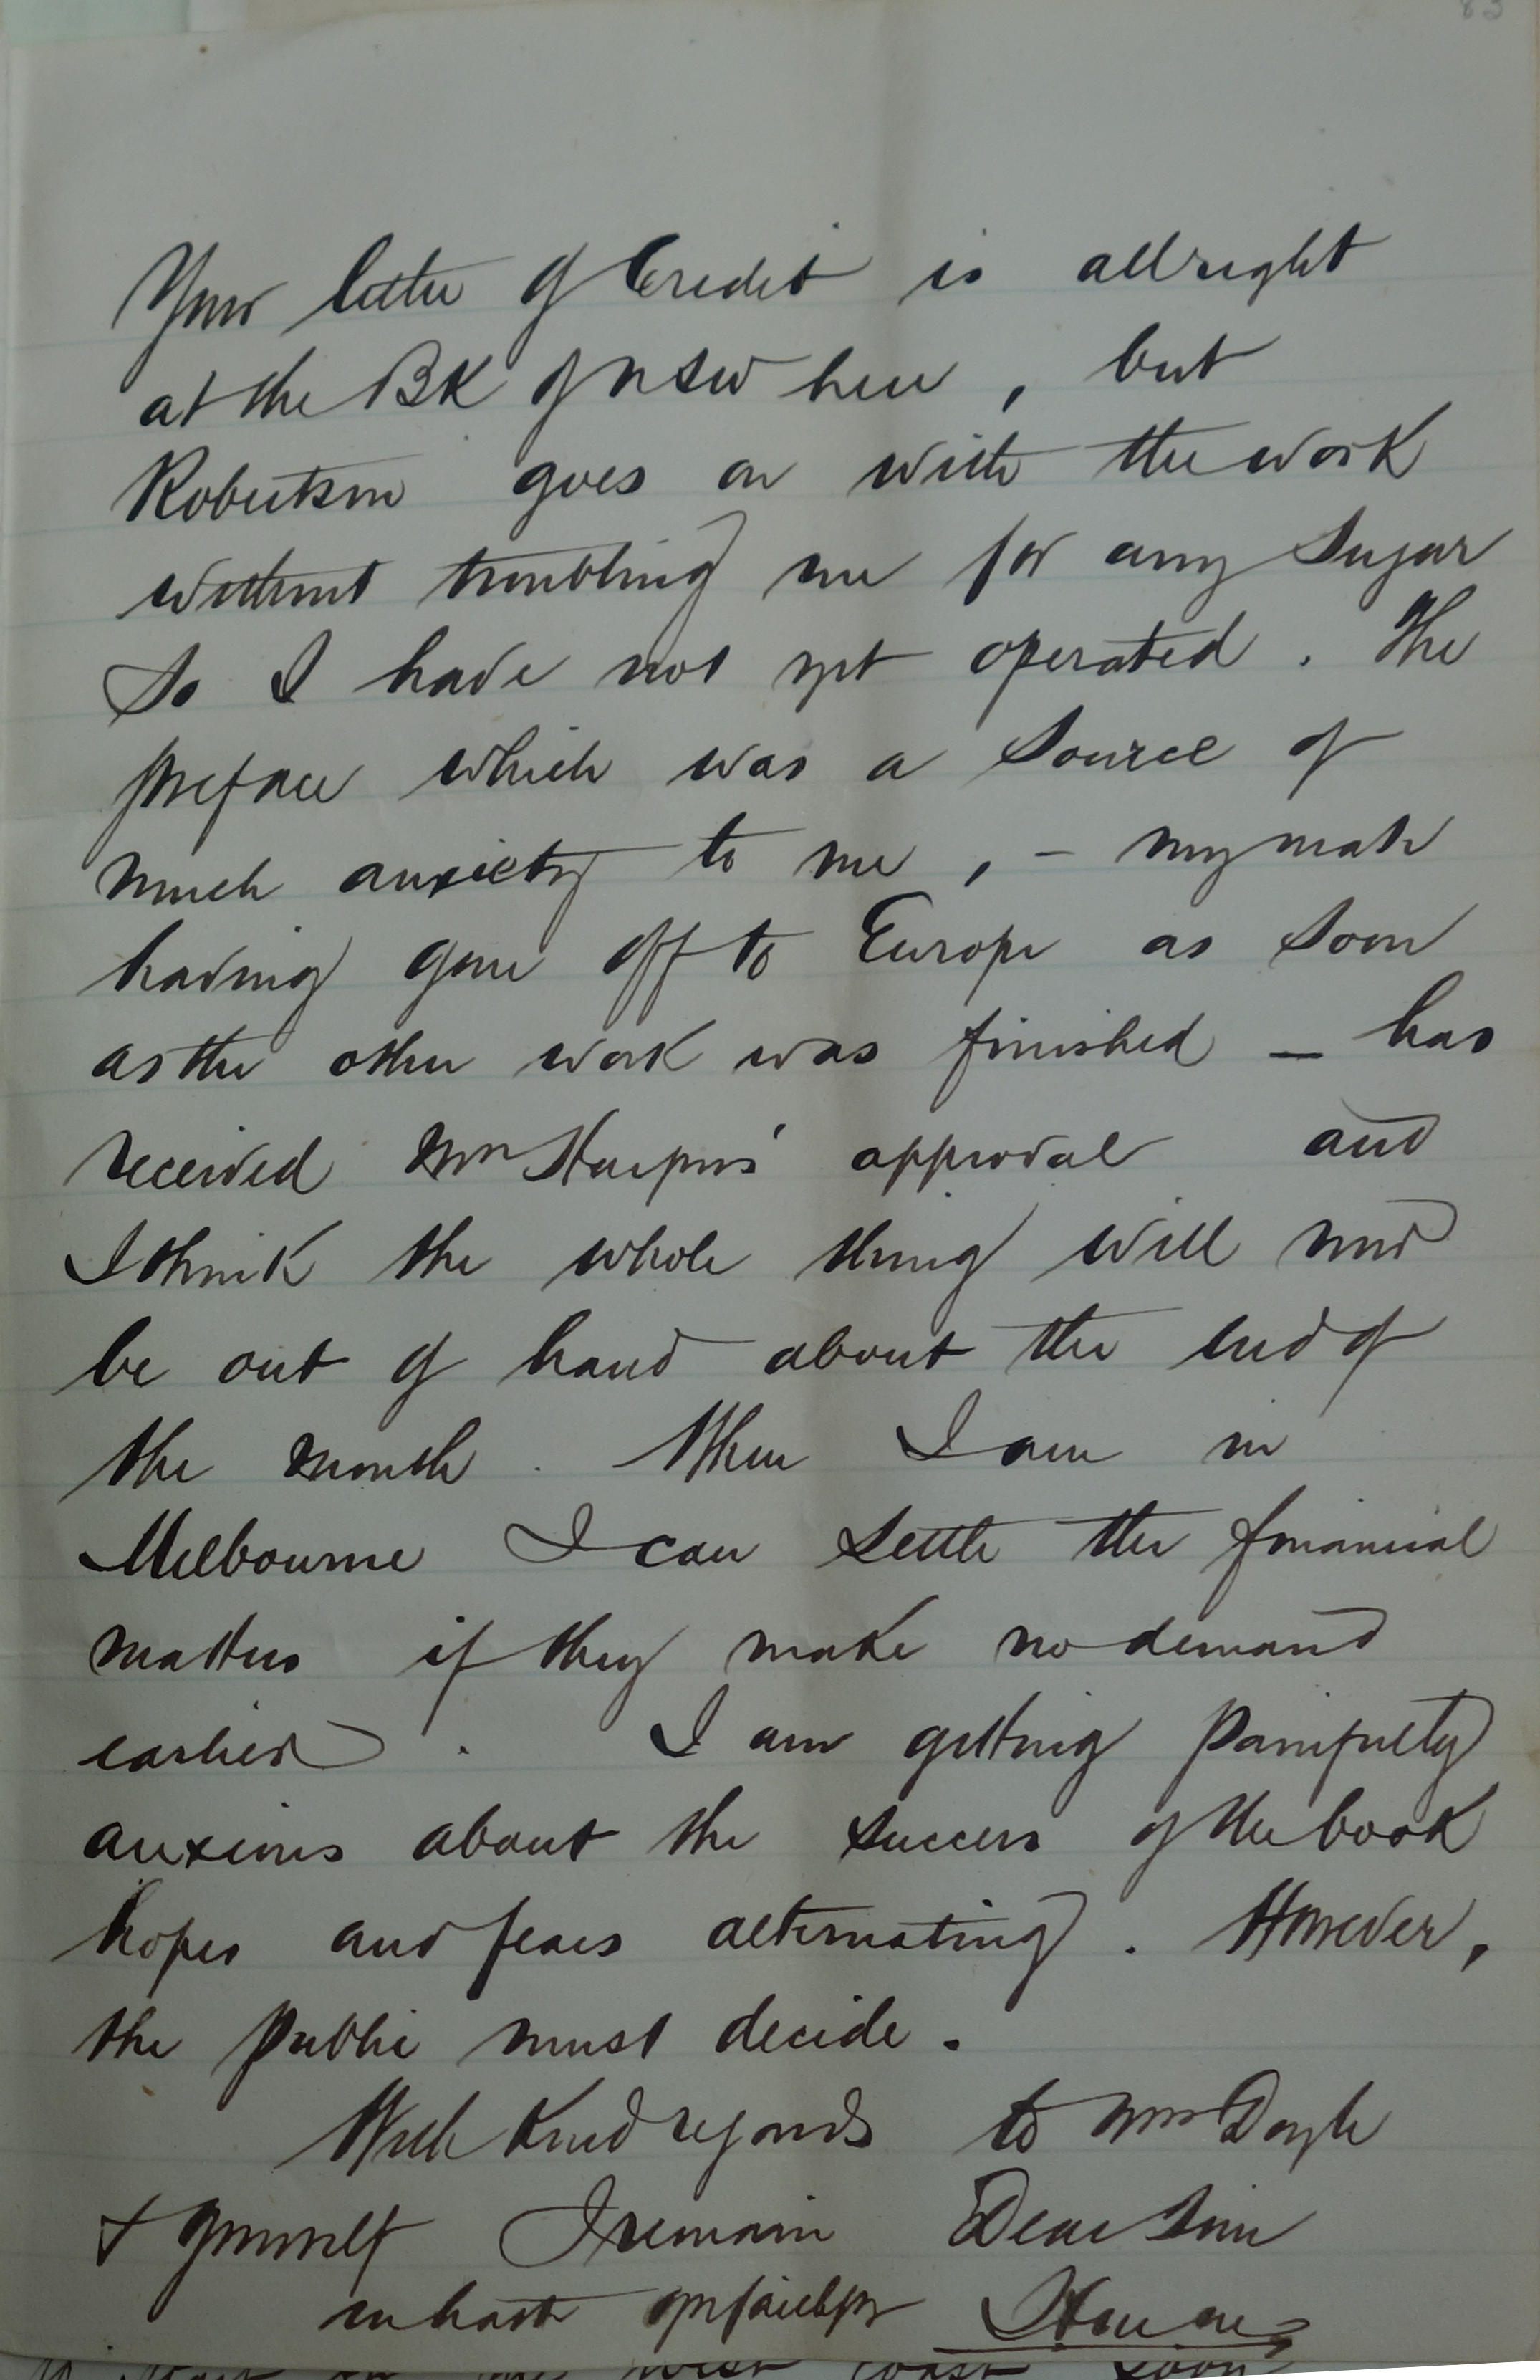 Your letter of Credit is allright
at the BK of NSW here, but
Robertson goes on with the work
without troubling me for any sugar
so I have not yet operated. The
preface which was a source of
much anxiety to me, - my mate
having gone off to Europe as soon
as the other work was finished - has
received Mrs Harpur's approval and
I think the whole thing will now
be out of hand about the end of
the month. When I am in
Melbourne I can settle the financial
matters if they make no demand
earlier. I am getting painfully
anxious about the success of the book
hopes and fears alternating. However,
the public must decide.
With Kind regards to Mrs Doyle
& yourself I remain Dear Sir
in haste yrs faithfly
west coast soon